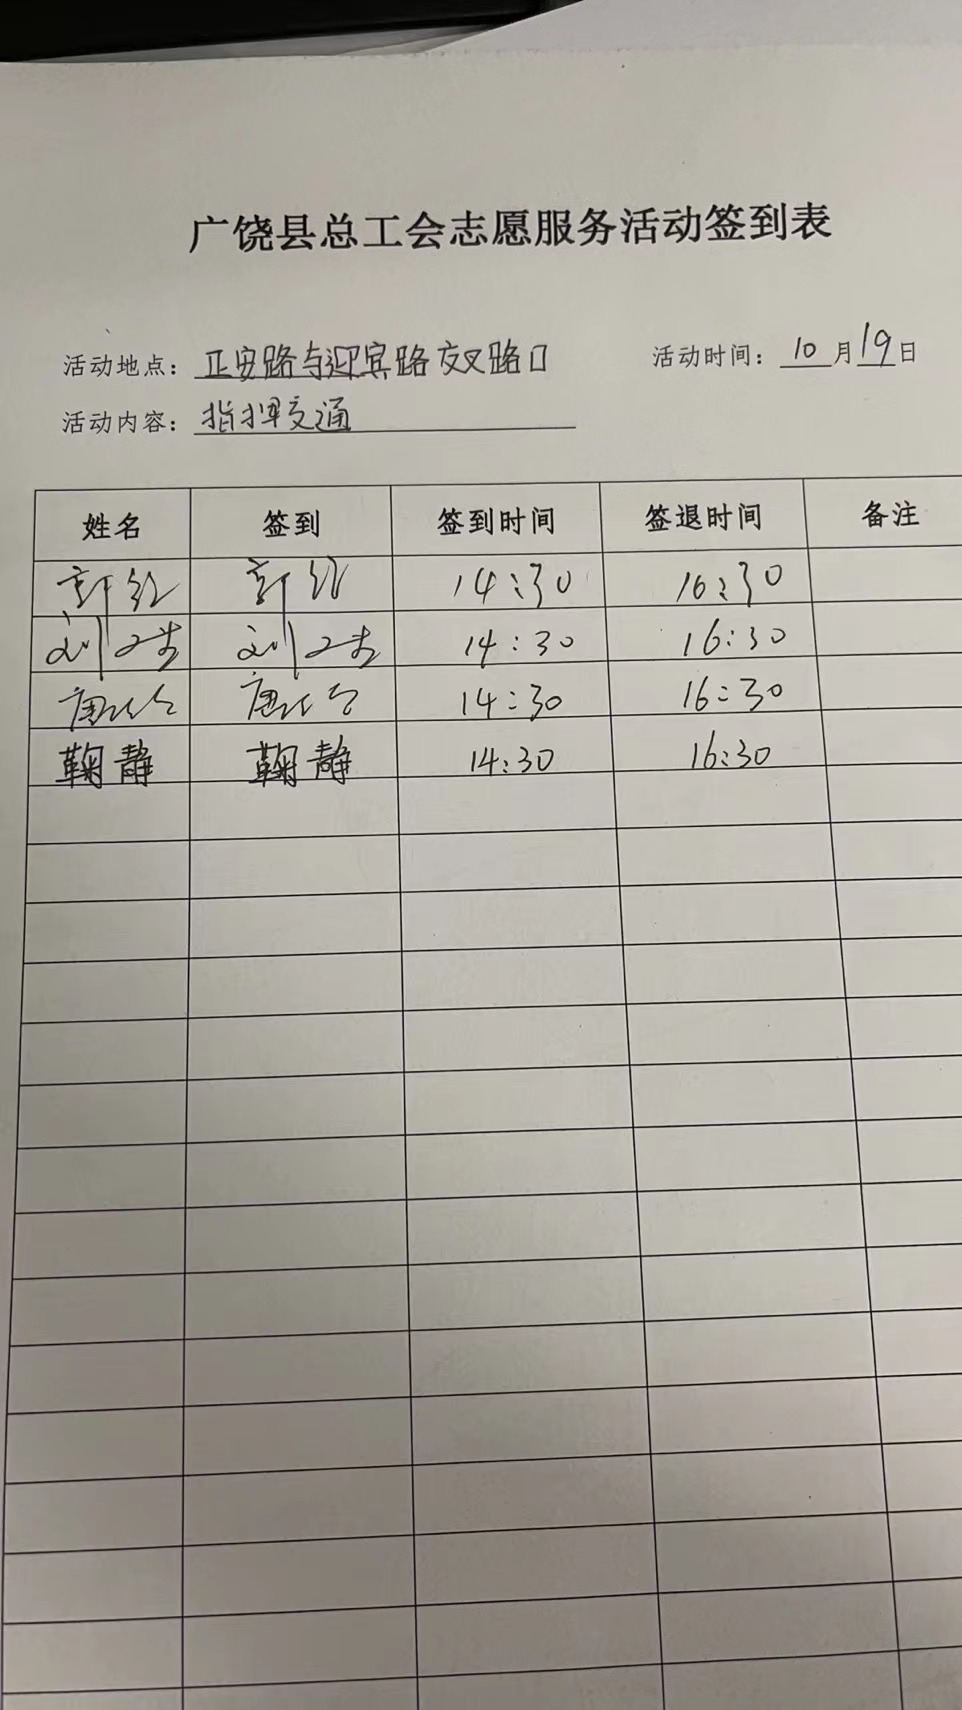 广饶县总工会志愿服务活动签到表
活动地点：正安路与迎宾路交叉路口 活动时间：10月19日
活动内容：指挥交通
姓名 签到 签到时间 签退时间 备注
14:30 16:30
刘 刘 14:30 16:30
唐 唐 14:30 16:30
鞠静 鞠静 14:30 16:30